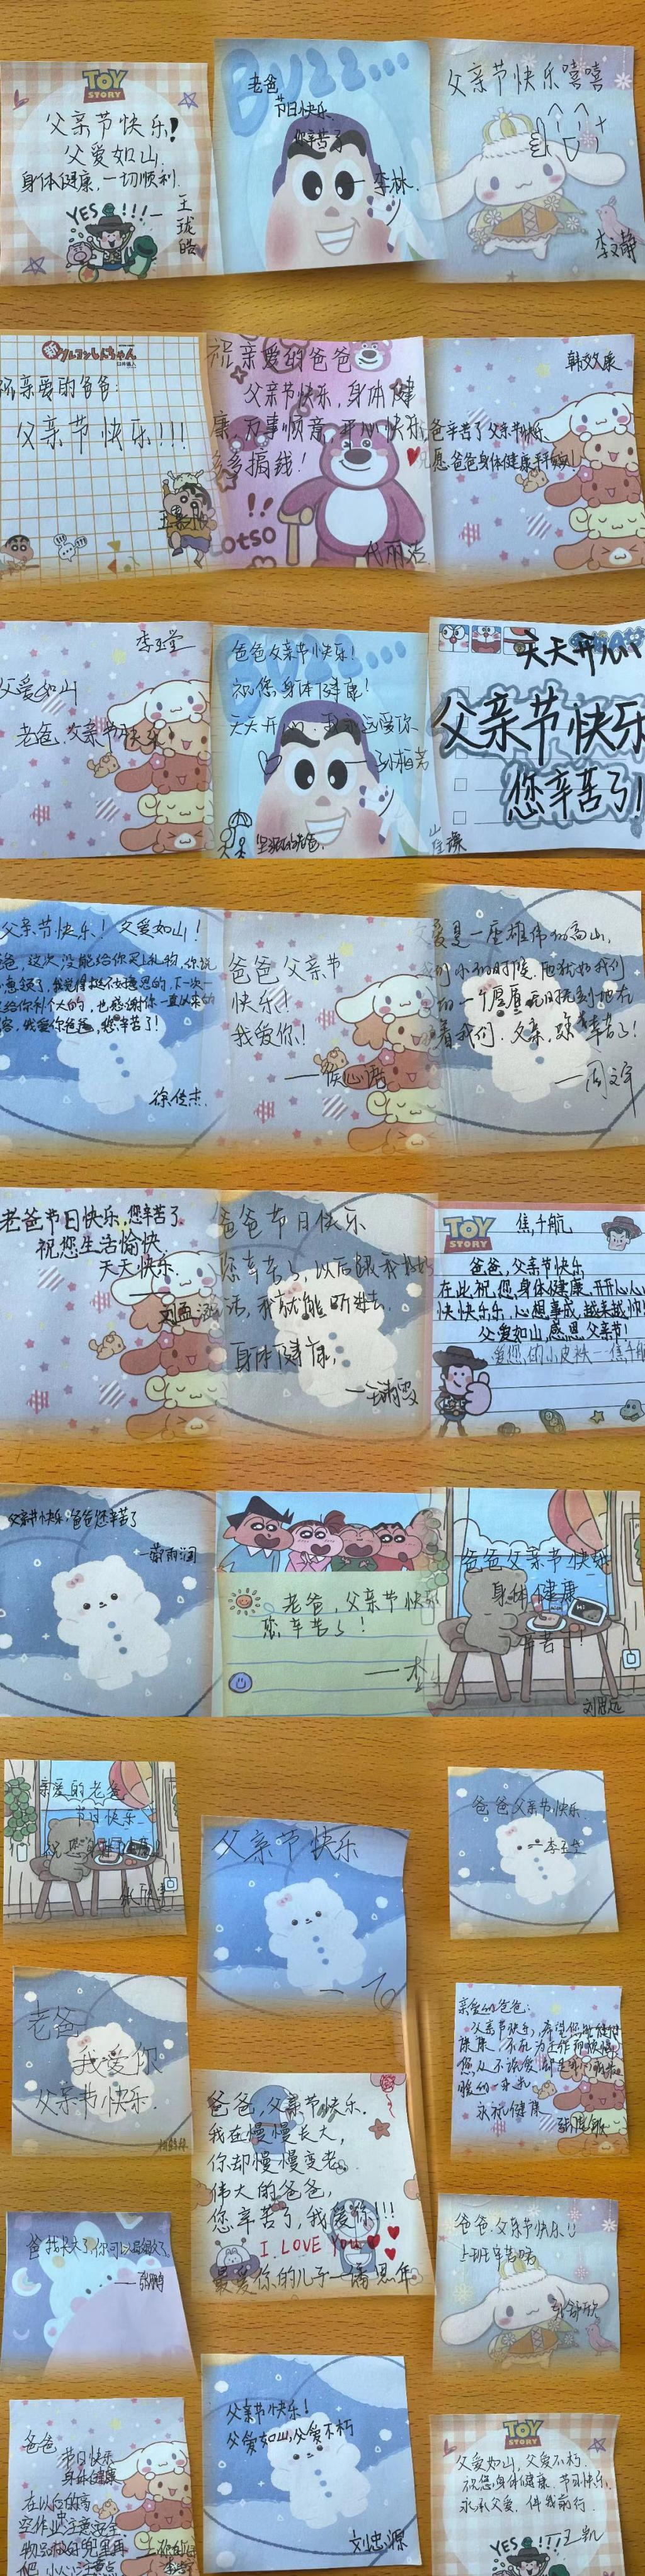 TOY
STORY
父亲节快乐!
父爱如山.
身体健康,一切顺利.
YES!!!
王珑皓
BUZZ...
老爸
节日快乐
你辛苦了
—李林.
父亲节快乐嘻嘻
李文静
祝亲爱的爸爸:
父亲节快乐!!!
祝亲爱的爸爸
父亲节快乐,身体健
康,万事顺意,开心快乐,
多多搞钱!
Lotso
代丽洁
韩效康
爸辛苦了父亲节快乐、
愿爸爸身体健康
李玉堂
父爱如山
老爸,父亲节快乐
爸爸父亲节快乐!
祝您身体健康!
天天开心,我永远爱你
天天开心
父亲节快乐
您辛苦了!
父亲节快乐!父爱如山!
爸,这次没能给你买上礼物,你说
给你补个大的,也感谢你一直以来的
我爱你爸爸,您辛苦了!
徐俊杰.
爸爸父亲节
快乐!
我爱你!
——侯心语
父爱是一座雄伟的高山,
小的时候,他就如我们
着我们.父亲,您辛苦了!
—周文宇
老爸节日快乐,您辛苦了
祝您生活愉快,
天天快乐.
爸爸节日快乐
您辛苦了,以后跟我好好
说,我就能听进去.
身体健康,
TOY
STORY
焦千航
爸爸,父亲节快乐
在此祝您,身体健康、开开心心
快快乐乐,心想事成,越来越帅!
父爱如山,感恩父亲节!
爱您的小皮袄——焦千航
父亲节快乐,爸爸您辛苦了
老爸,父亲节快乐
您辛苦了!
—李
爸爸父亲节快乐
身体健康
辛苦了!
刘思远
亲爱的老爸
节日快乐
祝您身体健康!
父亲节快乐
爸爸父亲节快乐
—李玉堂
老爸
我爱你
父亲节快乐.
亲爱的爸爸:
父亲节快乐,希望您
永祝健康
爸爸,父亲节快乐.
我在慢慢长大,
你却慢慢变老.
伟大的爸爸,
您辛苦了,我爱你!!!
I LOVE YOU
最爱你的儿子—潘思年
爸我长大了,你可以歇歇了
——张鹏
爸爸.父亲节快乐!
上班辛苦啦
张舒欣
爸爸
节日快乐
身体健康
在以后的高
空作业中注意安全
物品放好兜里再
吧,小心注意点
父亲节快乐!
父爱如山,父爱不朽
刘忠源
TOY
STORY
父爱如山,父爱不朽.
祝您身体健康,节日快乐.
永承父爱,伴我前行.
YES!!!